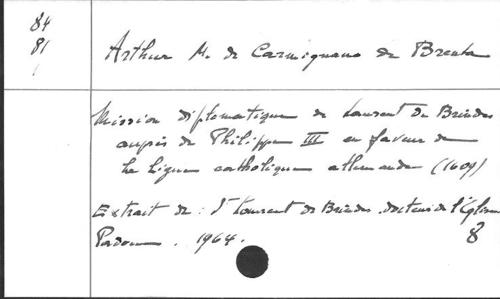 84
81
Arthur M. de Carmignano de Brenta
Mission diplomatique de Laurent de Brindes
auprès de Philippe III en faveur de
la Ligue catholique allemande (1609)
Extrait de : St Laurent de Brindes, docteur de l'Eglise
Padoue. 1964.
8